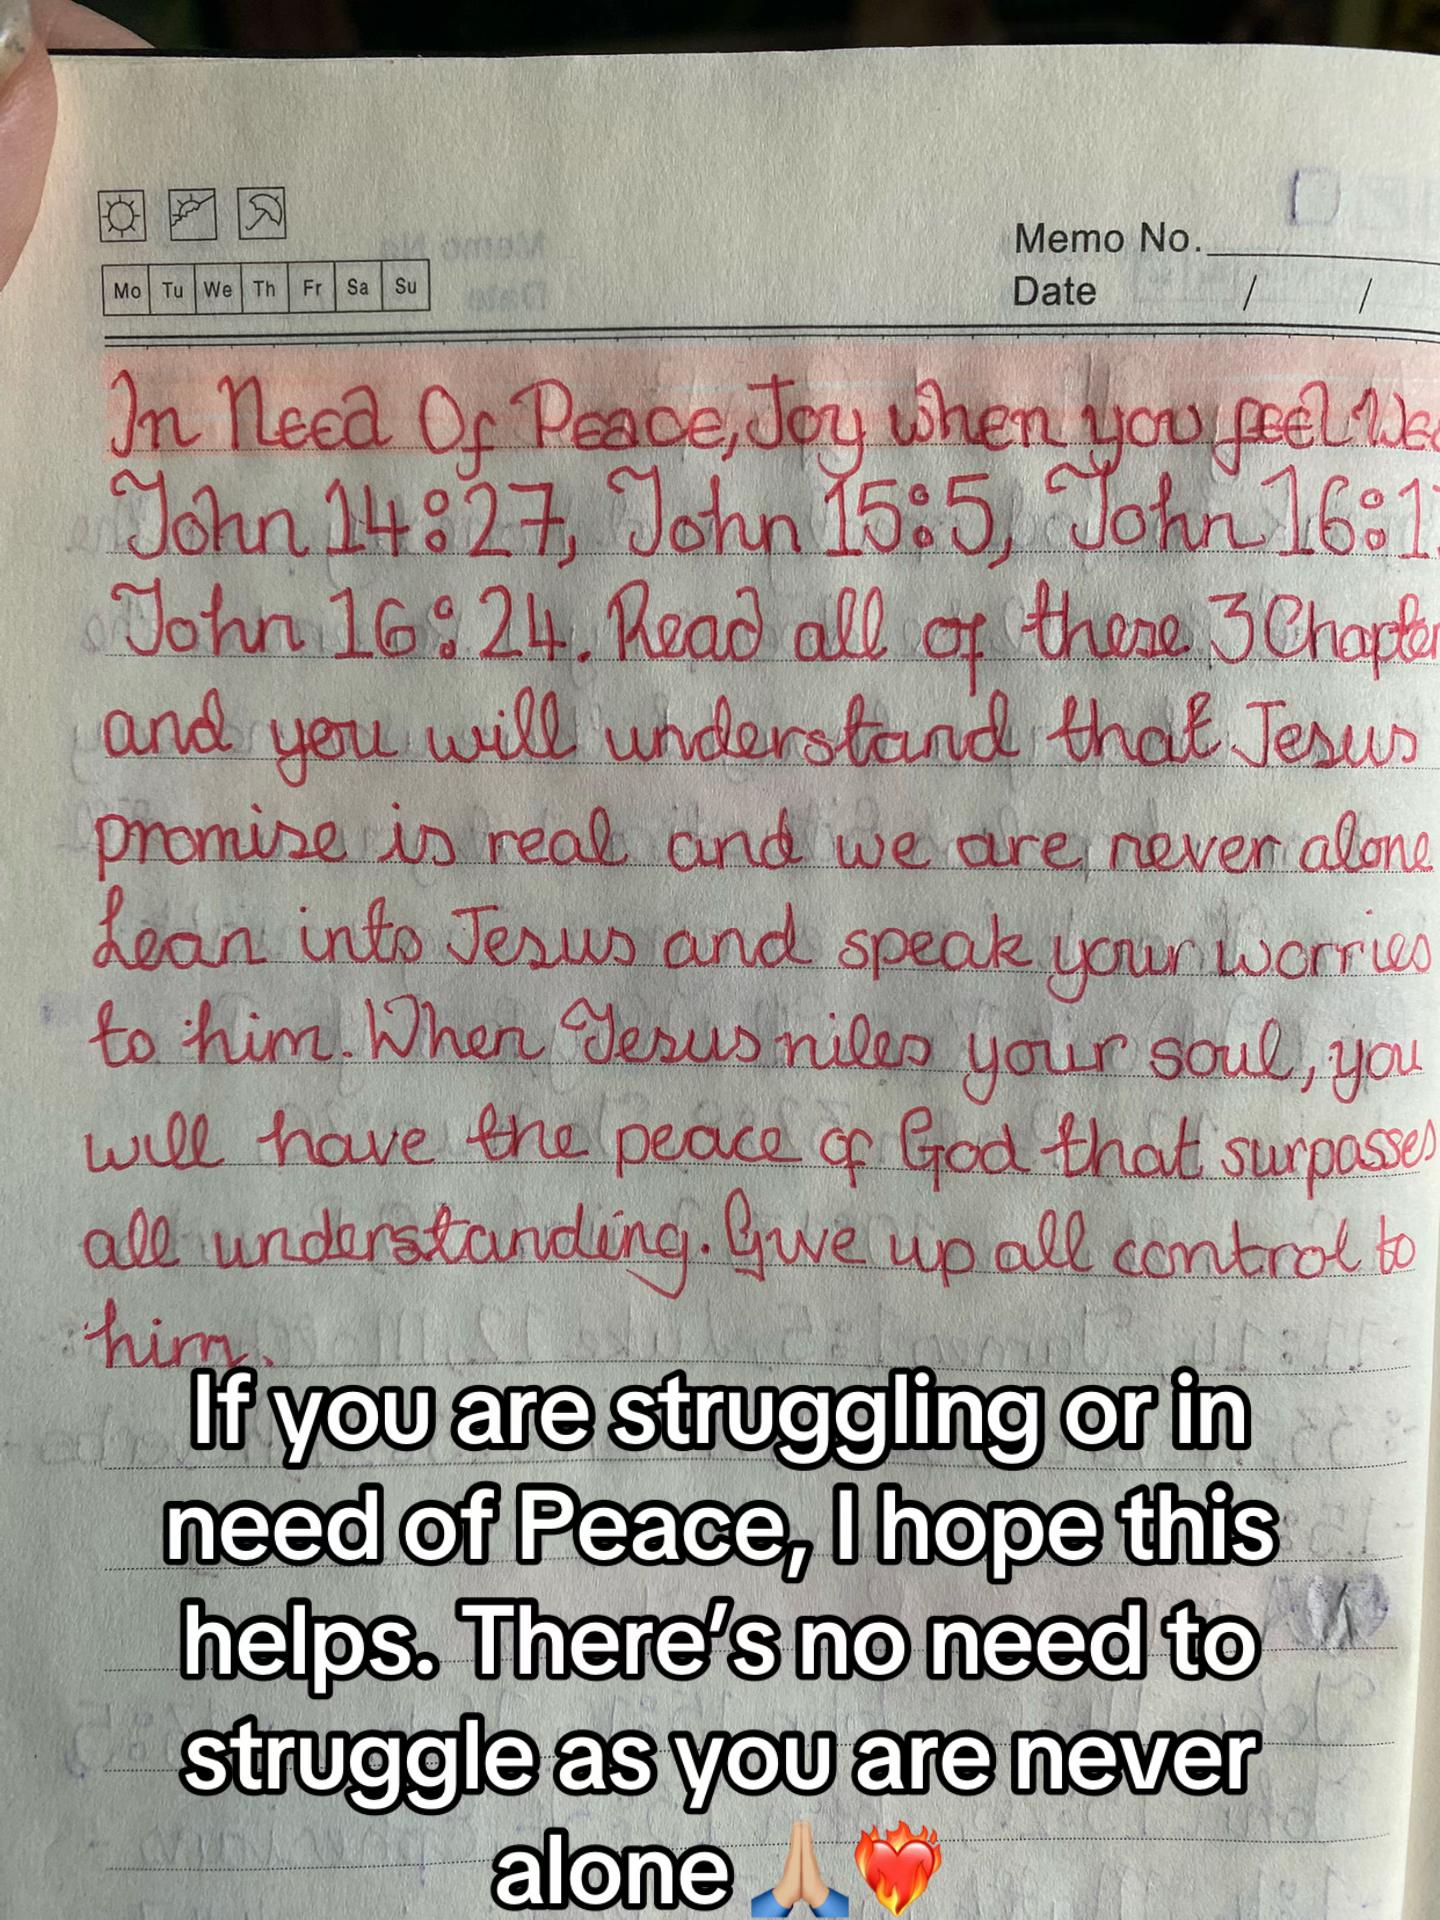 Memo No.
Date / /
Mo Tu We Th Fr Sa Su
In Need Of Peace, Joy when you feel
John 14:27, John 15:5, John 16:1
John 16:24. Read all of these 3 Chapter
and you will understand that Jesus
promise is real and we are never alone
Lean into Jesus and speak your worries
to him. When Jesus niles your soul, you
will have the peace of God that surpasses
all understanding. Give up all control to
him.
If you are struggling or in
need of Peace, I hope this
helps. There’s no need to
struggle as you are never
alone 🙏🏼❤️‍🔥